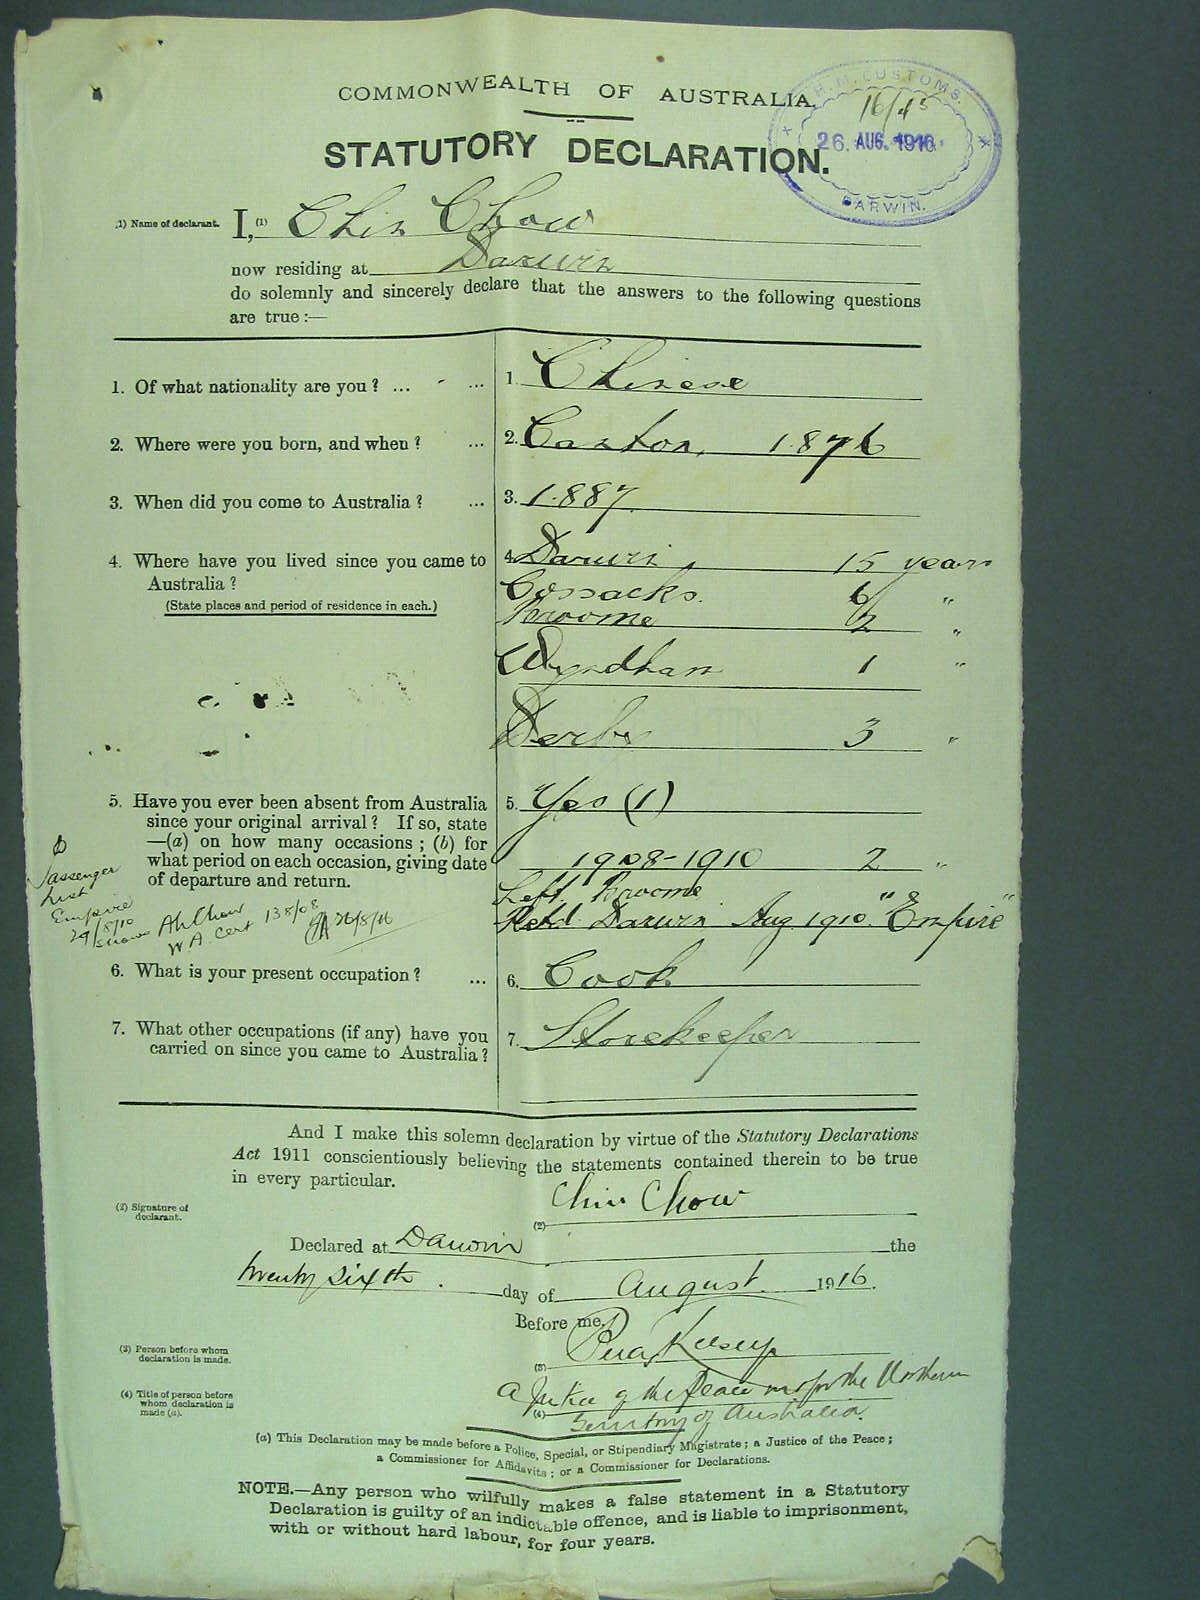 COMMONWEALTH OF AUSTRALIA.
H.M. CUSTOMS.
16/45
26. AUG. 1916.
DARWIN.
STATUTORY DECLARATION.
(1) Name of declarant. I, (1) Chin Chow
now residing at Darwin
do solemnly and sincerely declare that the answers to the following questions
are true :—
1. Of what nationality are you ? ... ... 1. Chinese
2. Where were you born, and when ? ... 2. Canton, 1876
3. When did you come to Australia ? ... 3. 1887.
4. Where have you lived since you came to 4. Darwin 15 years
Australia ? Cossacks. 6 "
(State places and period of residence in each.) Broome 2 "
Wyndham 1 "
Derby 3 "
5. Have you ever been absent from Australia 5. Yes (1)
since your original arrival ? If so, state
—(a) on how many occasions ; (b) for
what period on each occasion, giving date 1908-1910 2 "
of departure and return. Left Broome
Retd. Darwin Aug 1910. "Empire"
Passenger
List
Empire
29/8/10
Ah Chow
W A. Cert 138/08
26/8/16
6. What is your present occupation ? ... 6. Cook
7. What other occupations (if any) have you 7. Storekeeper
carried on since you came to Australia ?
And I make this solemn declaration by virtue of the Statutory Declarations
Act 1911 conscientiously believing the statements contained therein to be true
in every particular.
(2) Signature of
declarant.
(2) Chin Chow
Declared at Darwin the
twenty sixth day of August 1916.
Before me,
(3) Person before whom
declaration is made.
(3)
(4) Title of person before
whom declaration is
made (a).
A Justice of the Peace for the Northern
(4) Territory of Australia.
(a) This Declaration may be made before a Police, Special, or Stipendiary Magistrate ; a Justice of the Peace ;
a Commissioner for Affidavits ; or a Commissioner for Declarations.
NOTE.—Any person who wilfully makes a false statement in a Statutory
Declaration is guilty of an indictable offence, and is liable to imprisonment,
with or without hard labour, for four years.